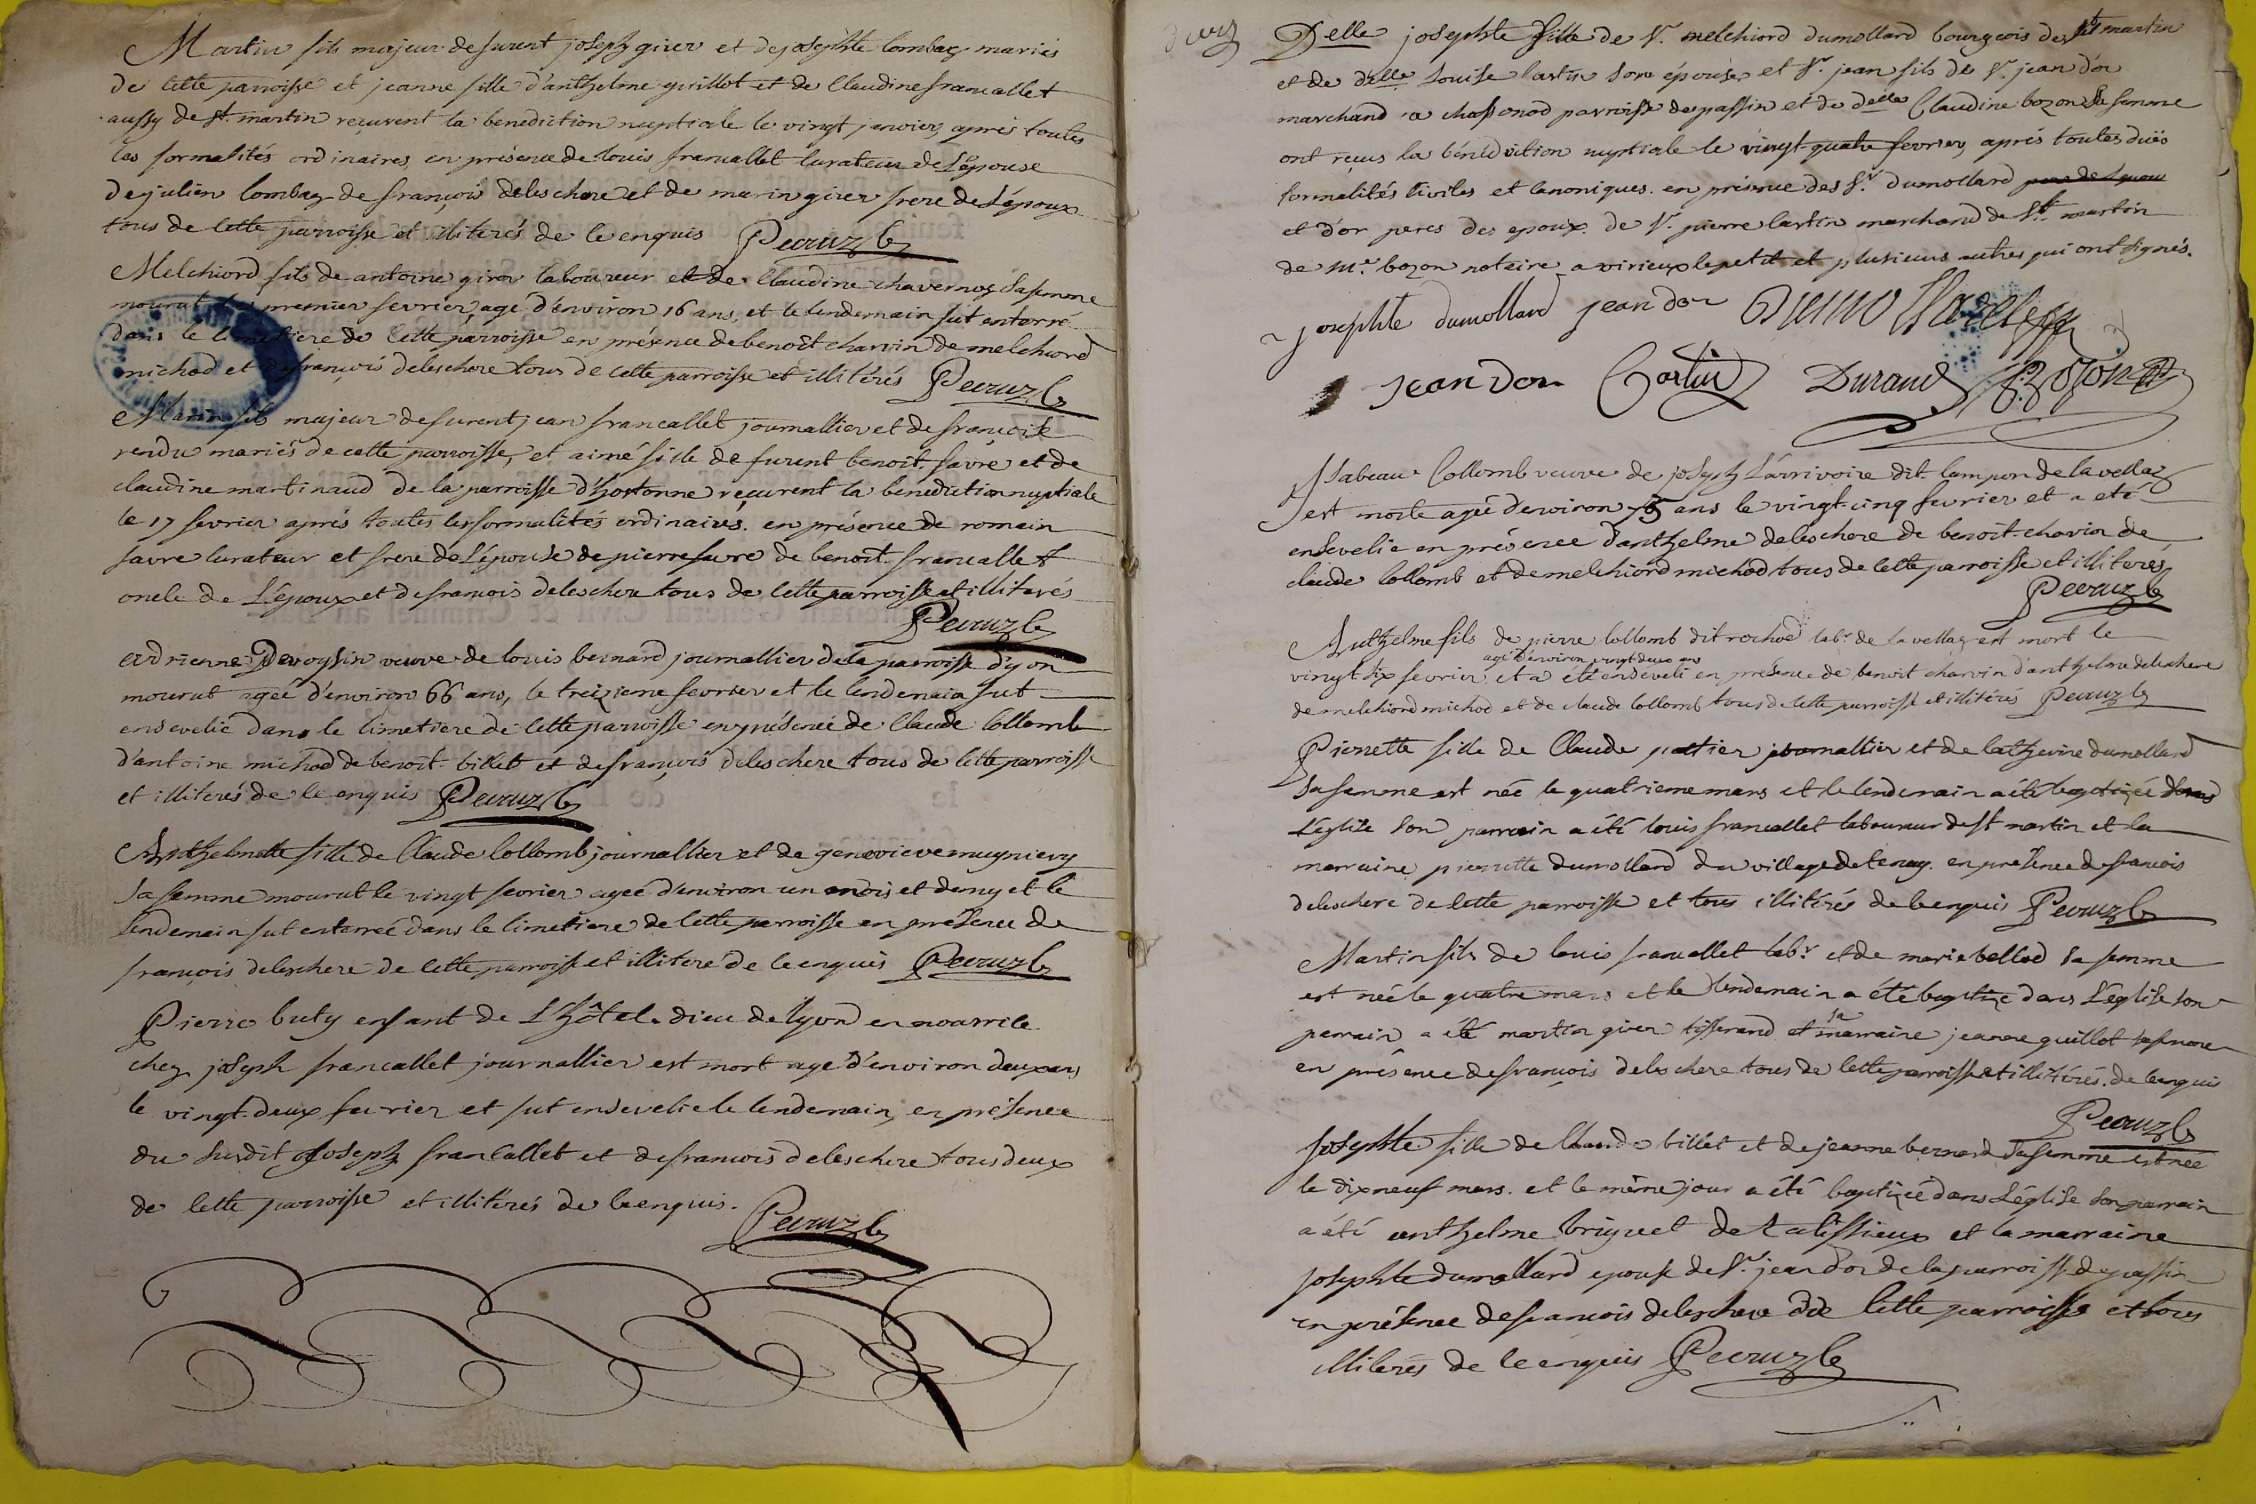 Martin fils majeur defurent joseph girer et de josephte lombaz mariés
de cette parroisse et jeanne fille d'anthelme guillot et de Claudine francallet
aussy de St. martin reçurent la benediction nuptiale le vingt janvier, aprés toutes
les formalités ordinaires, en présence de louis francallet curateur de L'épouse
de julien lombaz de françois deleschere et de marin girer frere de L'époux
tous de cette parroisse et illiterés de ce enquis Pecruz C
Melchiord fils de antoine girer laboureur et de Claudine chavernoz sa femme
mourut le premier fevrier, agé d'environ 16 ans, et le lendemain fut enterré
dans le cimetiere de cette parroisse en présence de benoit charvin de melchiord
michod et de françois deleschere tous de cette parroisse et illitérés Pecruz C
Marin fils majeur defurent jean francallet journallier et de françoise
rendu mariés de cette parroisse, et aimé fille de furent benoit favre et de
claudine martinaud de la parroisse d'hostonne reçurent la benediction nuptiale
le 17 fevrier aprés toutes les formalités ordinaires. en présence de romain
favre curateur et frere de L'épouse de pierre favre de benoit francallet
oncle de L'epoux et de francois deleschere tous de cette parroisse et illiterés
Pecruz C
adrienne Devoysin veuve de louis bernard journallier de la parroisse d'yon
mourut ageé d'environ 66 ans, le treizieme fevrier et le lendemain fut
ensevelie dans le cimetiere de cette parroisse en présence de Claude Collomb
d'antoine michod de benoit billet et de françois deleschere tous de cette parroisse
et illiterés de ce enquis Pecruz C
Anthelmette fille de Claude Collomb journallier et de genevieve mugniery
sa femme mourut le vingt fevrier ageé d'environ un mois et demy et le
lendemain fut enterreé dans le cimetiere de cette parroisse en présence de
françois deleschere de cette parroisse et illiteré de ce enquis Pecruz C
Pierre buty enfant de L'hôtel-dieu de lyon en nourrice
chez joseph francallet journallier est mort agé d'environ deux ans
le vingt-deux fevrier et fut ensevelie le lendemain, en présence
du susdit joseph francallet et de francois deleschere tous deux
de cette parroisse et illitérés de ce enquis.
Pecruz C
Delle josephte fille de Sr. melchiord dumollard bourgeois de St martin
et de delle louise Cartin son épouse, et Sr. jean fils de Sr. jean d'or
marchand a chassonod parroisse de passin et de delle Claudine bozon sa femme
ont reçus la bénédiction nuptiale le vingt quatre fevrier, aprés toutes duës
formalités civiles et canoniques. en présence des Srs dumollard pere de L'epouse
et d'or peres des epoux. de Sr. pierre Cartin marchand de St. martin
de Me. bozon notaire a virieux le petit et plusieurs autres qui ont signés.
josephte dumollard jean dor
Jean Dor Cartin Durand Bozon
Isabeau Collomb veuve de joseph Larrivoire dit lampon de la vellaz
est morte ageé d'environ 75 ans le vingt-cinq fevrier et a eté
ensevelie en présence d'anthelme deleschere de benoit charvin de
claude Collomb et de melchiord michod tous de cette parroisse et illiterés
Pecruz C
Anthelme fils de pierre Collomb dit rochod labr. de la vellaz est mort le
agé d'environ vingt deux ans
vingt six fevrier et a été enseveli en présence de benoit charvin d'anthelme deleschere
de melchiord michod et de claude Collomb tous de cette parroisse et illitérés Pecruz C
Pierrette fille de Claude pattier journallier et de Catherine dumollard
sa femme est née le quatrieme mars et le lendemain a été baptizeé dans
L'église son parrain a été louis francallet laboureur de St martin et la
marraine pierrette dumollard du village de tenay. en présence de francois
deleschere de cette parroisse et tous illitérés de ce enquis Pecruz C
Martin fils de louis francallet labr. et de marie bellod sa femme
est né le quatre mars et le lendemain a été baptizé dans L'église son
parrain a été martin girer tisserand et sa marraine jeanne guillot sa femme
en présence de francois deleschere tous de cette parroisse et illitérés. de ce enquis
Pecruz C
Josephte fille de Claude billet et de jeanne bernard sa femme est née
le dix neuf mars. et le même jour a été baptizeé dans L'église son parrain
a été anthelme briguet de talissieux et la marraine
josephte dumollard epouse de Sr. jean d'or de la parroisse de passin
en présence de francois deleschere de cette parroisse et tous
illiterés de ce enquis Pecruz C